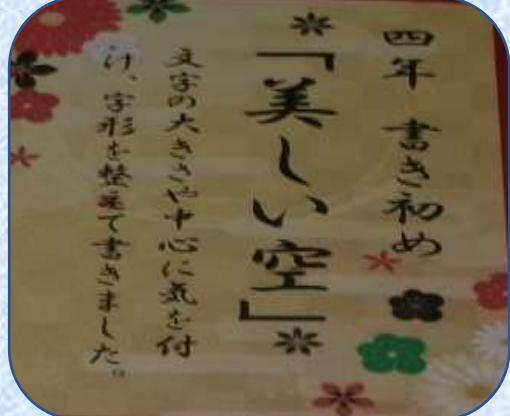 四年 書き初め
*「美しい空」*
文字の大きさや中心に気を付
け、字形を整えて書きました。